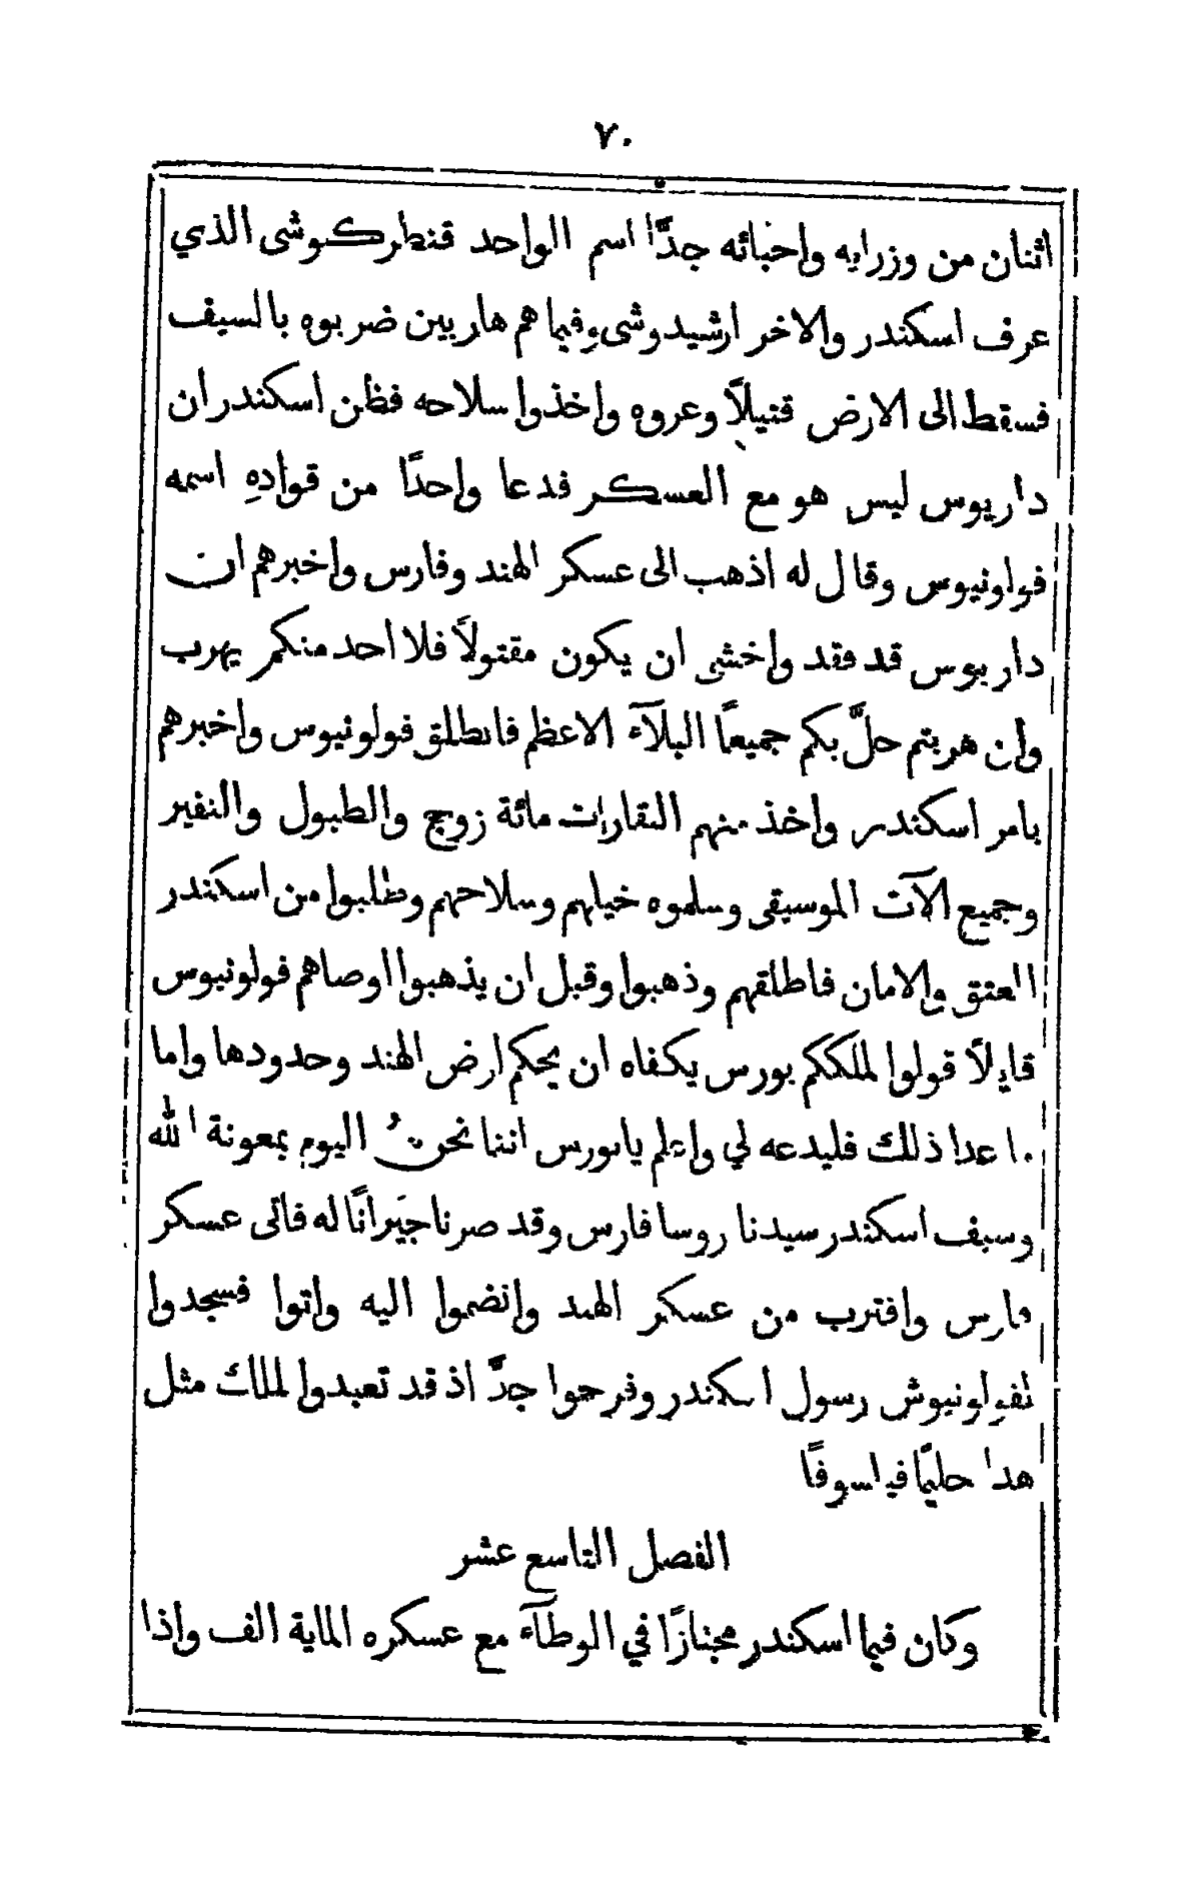 ٧٠
اثنان من وزرايه واحبائه جدًّا اسم الواحد قنطركوشى الذي
عرف اسكندر والاخر ارشيدوشى وفيما هم هاربين ضربوه بالسيف
فسقط الى الارض قتيلاً وعروه واخذوا سلاحه فظن اسكندر ان
داريوس ليس هو مع العسكر فدعا واحدًا من قوادهِ اسمه
فولونيوس وقال له اذهب الى عسكر الهند وفارس واخبرهم ان
داريوس قد فقد واخشى ان يكون مقتولاً فلا احد منكم يهرب
وان هربتم حلَّ بكم جميعًا البلآء الاعظم فانطلق فولونيوس واخبرهم
بامر اسكندر واخذ منهم النقارات مائة زوج والطبول والنفير
وجميع الآت الموسيقى وسلموه خيلهم وسلاحهم وطلبوا من اسكندر
العتق والامان فاطلقهم وذهبوا وقبل ان يذهبوا اوصاهم فولونيوس
قايلاً قولوا لملككم بورس يكفاه ان يحكم ارض الهند وحدودها واما
ما عدا ذلك فليدعه لي واعلم يا بورس اننا نحن اليوم بمعونة الله
وسيف اسكندر سيدنا روسا فارس وقد صرنا جيرانًا له فاتى عسكر
فارس واقترب من عسكر الهند وانضموا اليه واتوا فسجدوا
لفولونيوش رسول اسكندر وفرحوا جدًّا اذ قد تعبدوا لملك مثل
هذا حليمًا فيلسوفًا
الفصل التاسع عشر
وكان فيما اسكندر مجتازًا في الوطآء مع عسكره الماية الف واذا